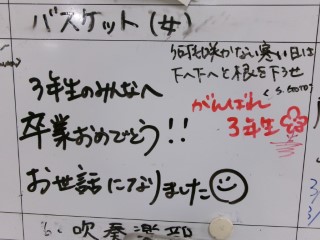 バスケット(女)
何も咲かない寒い日は
下へ下へと根を下ろせ
3年生のみんなへ
がんばれ
3年生
卒業おめでとう!!
お世話になりました
吹奏楽部